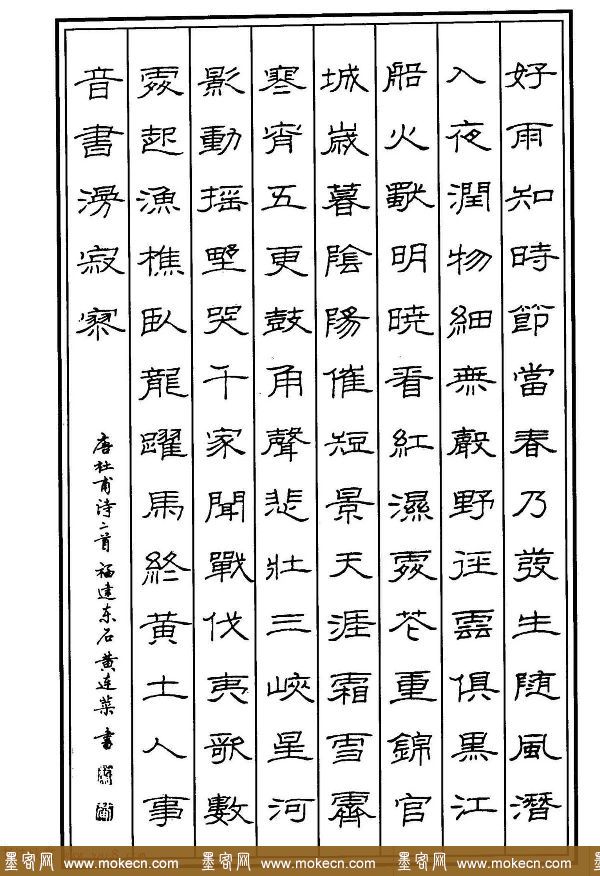 好雨知時節當春乃發生随風潛
入夜潤物細無聲野徑雲俱黑江
船火獸明曉看紅濕處花重錦官
城歲暮陰陽催短景天涯霜雪霽
寒宵五更鼓角聲悲壯三峽星河
影動摇野哭千家聞戰伐夷歌數
處起漁樵臥龍躍馬終黃土人事
音書漫寂寥
唐杜甫诗二首 福建东石黄连葉書
墨客网 www.mokecn.com 墨客网 www.mokecn.com 墨客网 www.mokecn.com